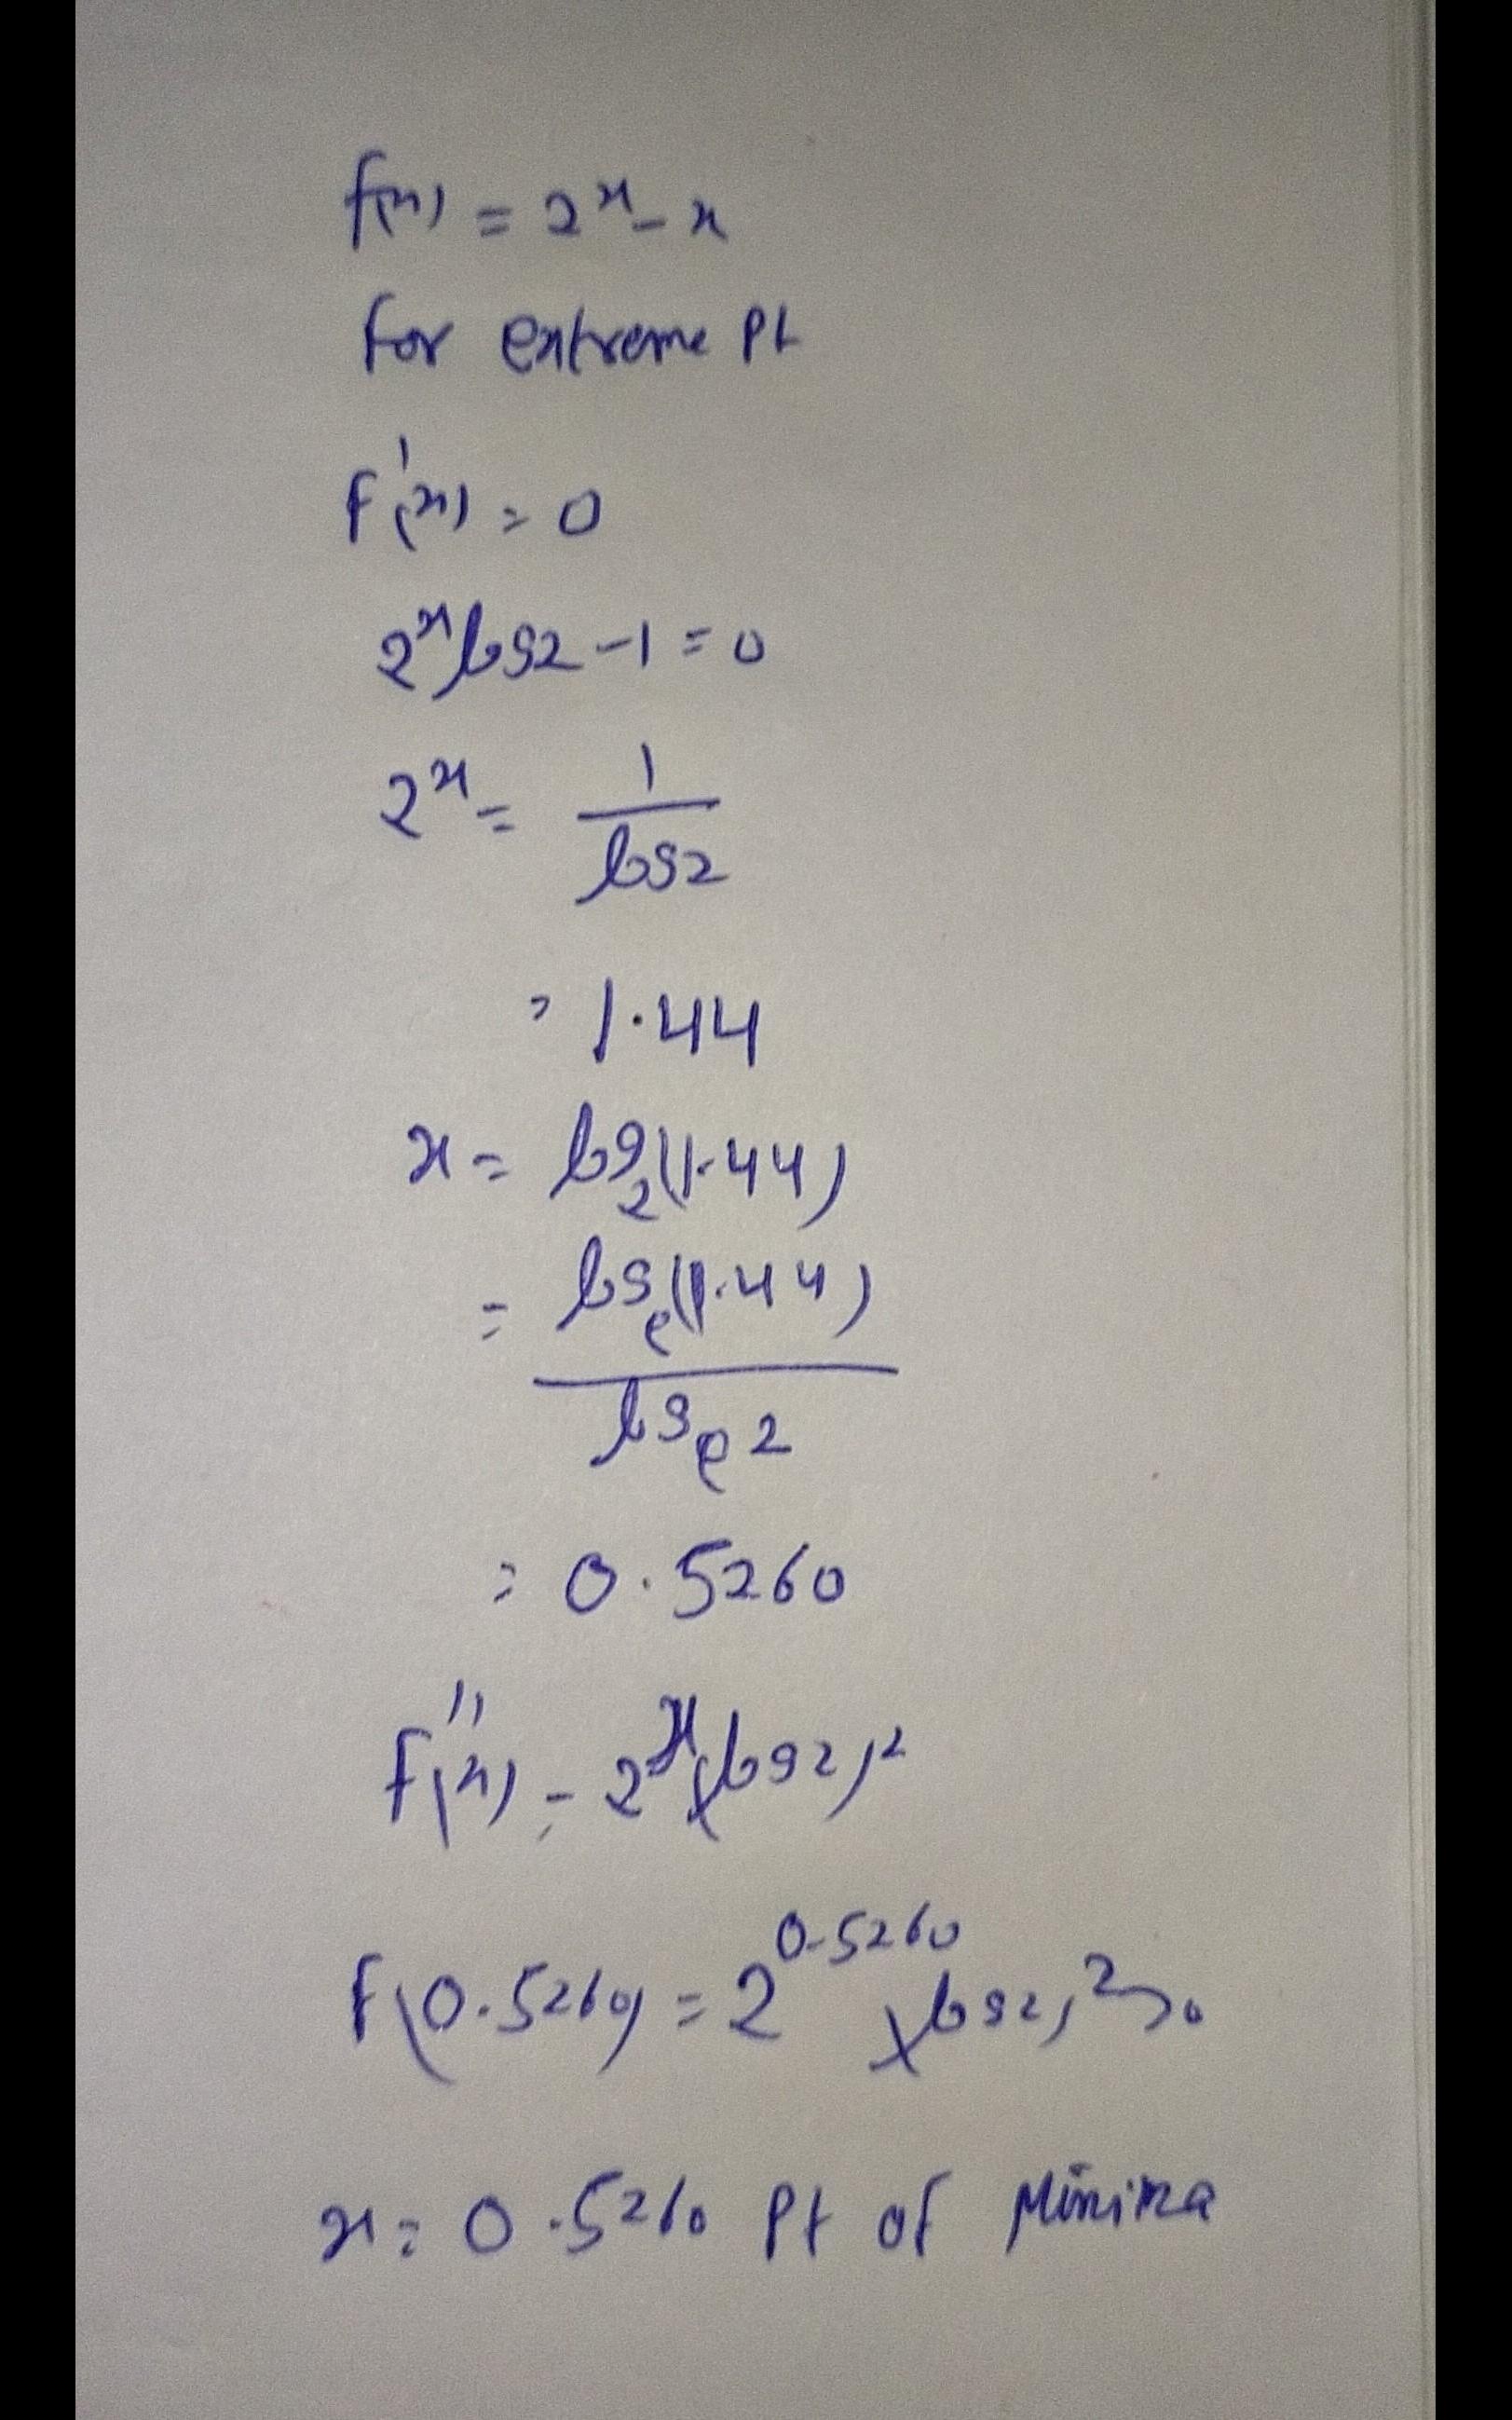 f(x) = 2^x - x
for extreme Pt
f'(x) = 0
2^x log2 - 1 = 0
2^x = 1/log2
= 1.44
x = log_2(1.44)
= log_e(1.44)/log_e 2
= 0.5260
f''(x) = 2^x (log2)^2
f(0.5260) = 2^0.5260 x (log2)^2 > 0
x = 0.5260 Pt of Minima